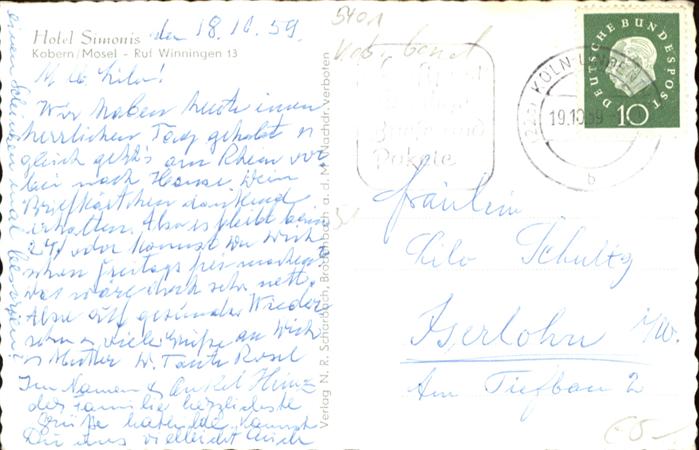 Hotel Simonis den 18.10.59.
Kobern/Mosel - Ruf Winningen 13
5401
M. lb. Lilo!
Wir haben heute einen
herrlichen Tag gehabt u.
gleich geht's am Rhein vor-
bei nach Hause. Dein
Briefkärtchen dankend
erhalten. Also es bleibt beim
24. oder kannst Du Dich
schon freitags frei machen
das wäre doch sehr nett.
Also auf gesundes Wieder-
sehn u. viele Grüße an Dich
u. Mutter D. Tante Rosel
Im Namen Onkel Heinz
der Familie herzlichste
Grüße
Du uns vielleicht auch
Verlag N. R. Scharbach, Braubach a. d. M. Nachdr. verboten
Briefe und
Pakete
KÖLN
19.10.59
b
DEUTSCHE BUNDESPOST
10
Fräulein
Lilo Schultz
Iserlohn i/W.
Am Tiefbau 2